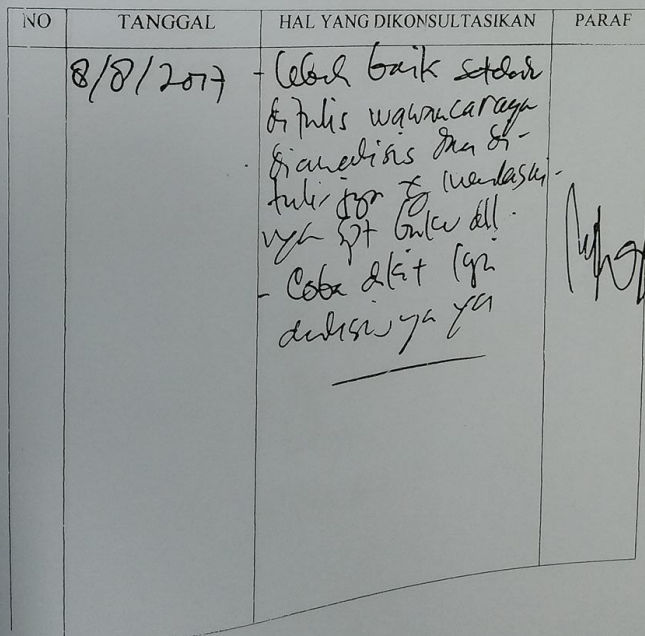 NO TANGGAL HAL YANG DIKONSULTASIKAN PARAF
8/8/2017 - Lebih baik setelah
ditulis wawancaranya
dianalisis dan di-
tulis jga yg mendasari-
nya spt buku dll.
- Coba dkit lgi
ya